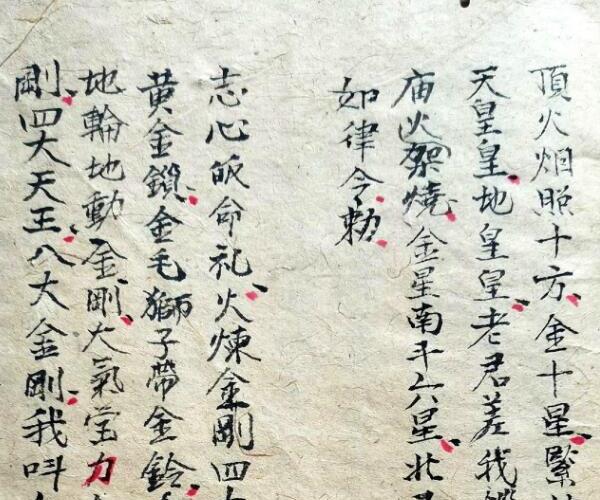 頂火烟照十方金十星緊
天皇皇地皇皇老君差我
庙火架燒金星南斗六星北
如律令勅
志心皈命礼火煉金剛四大
黄金鎖金毛獅子帶金鈴
地輪地動金剛大氣堂力
剛四大天王八大金剛我叫